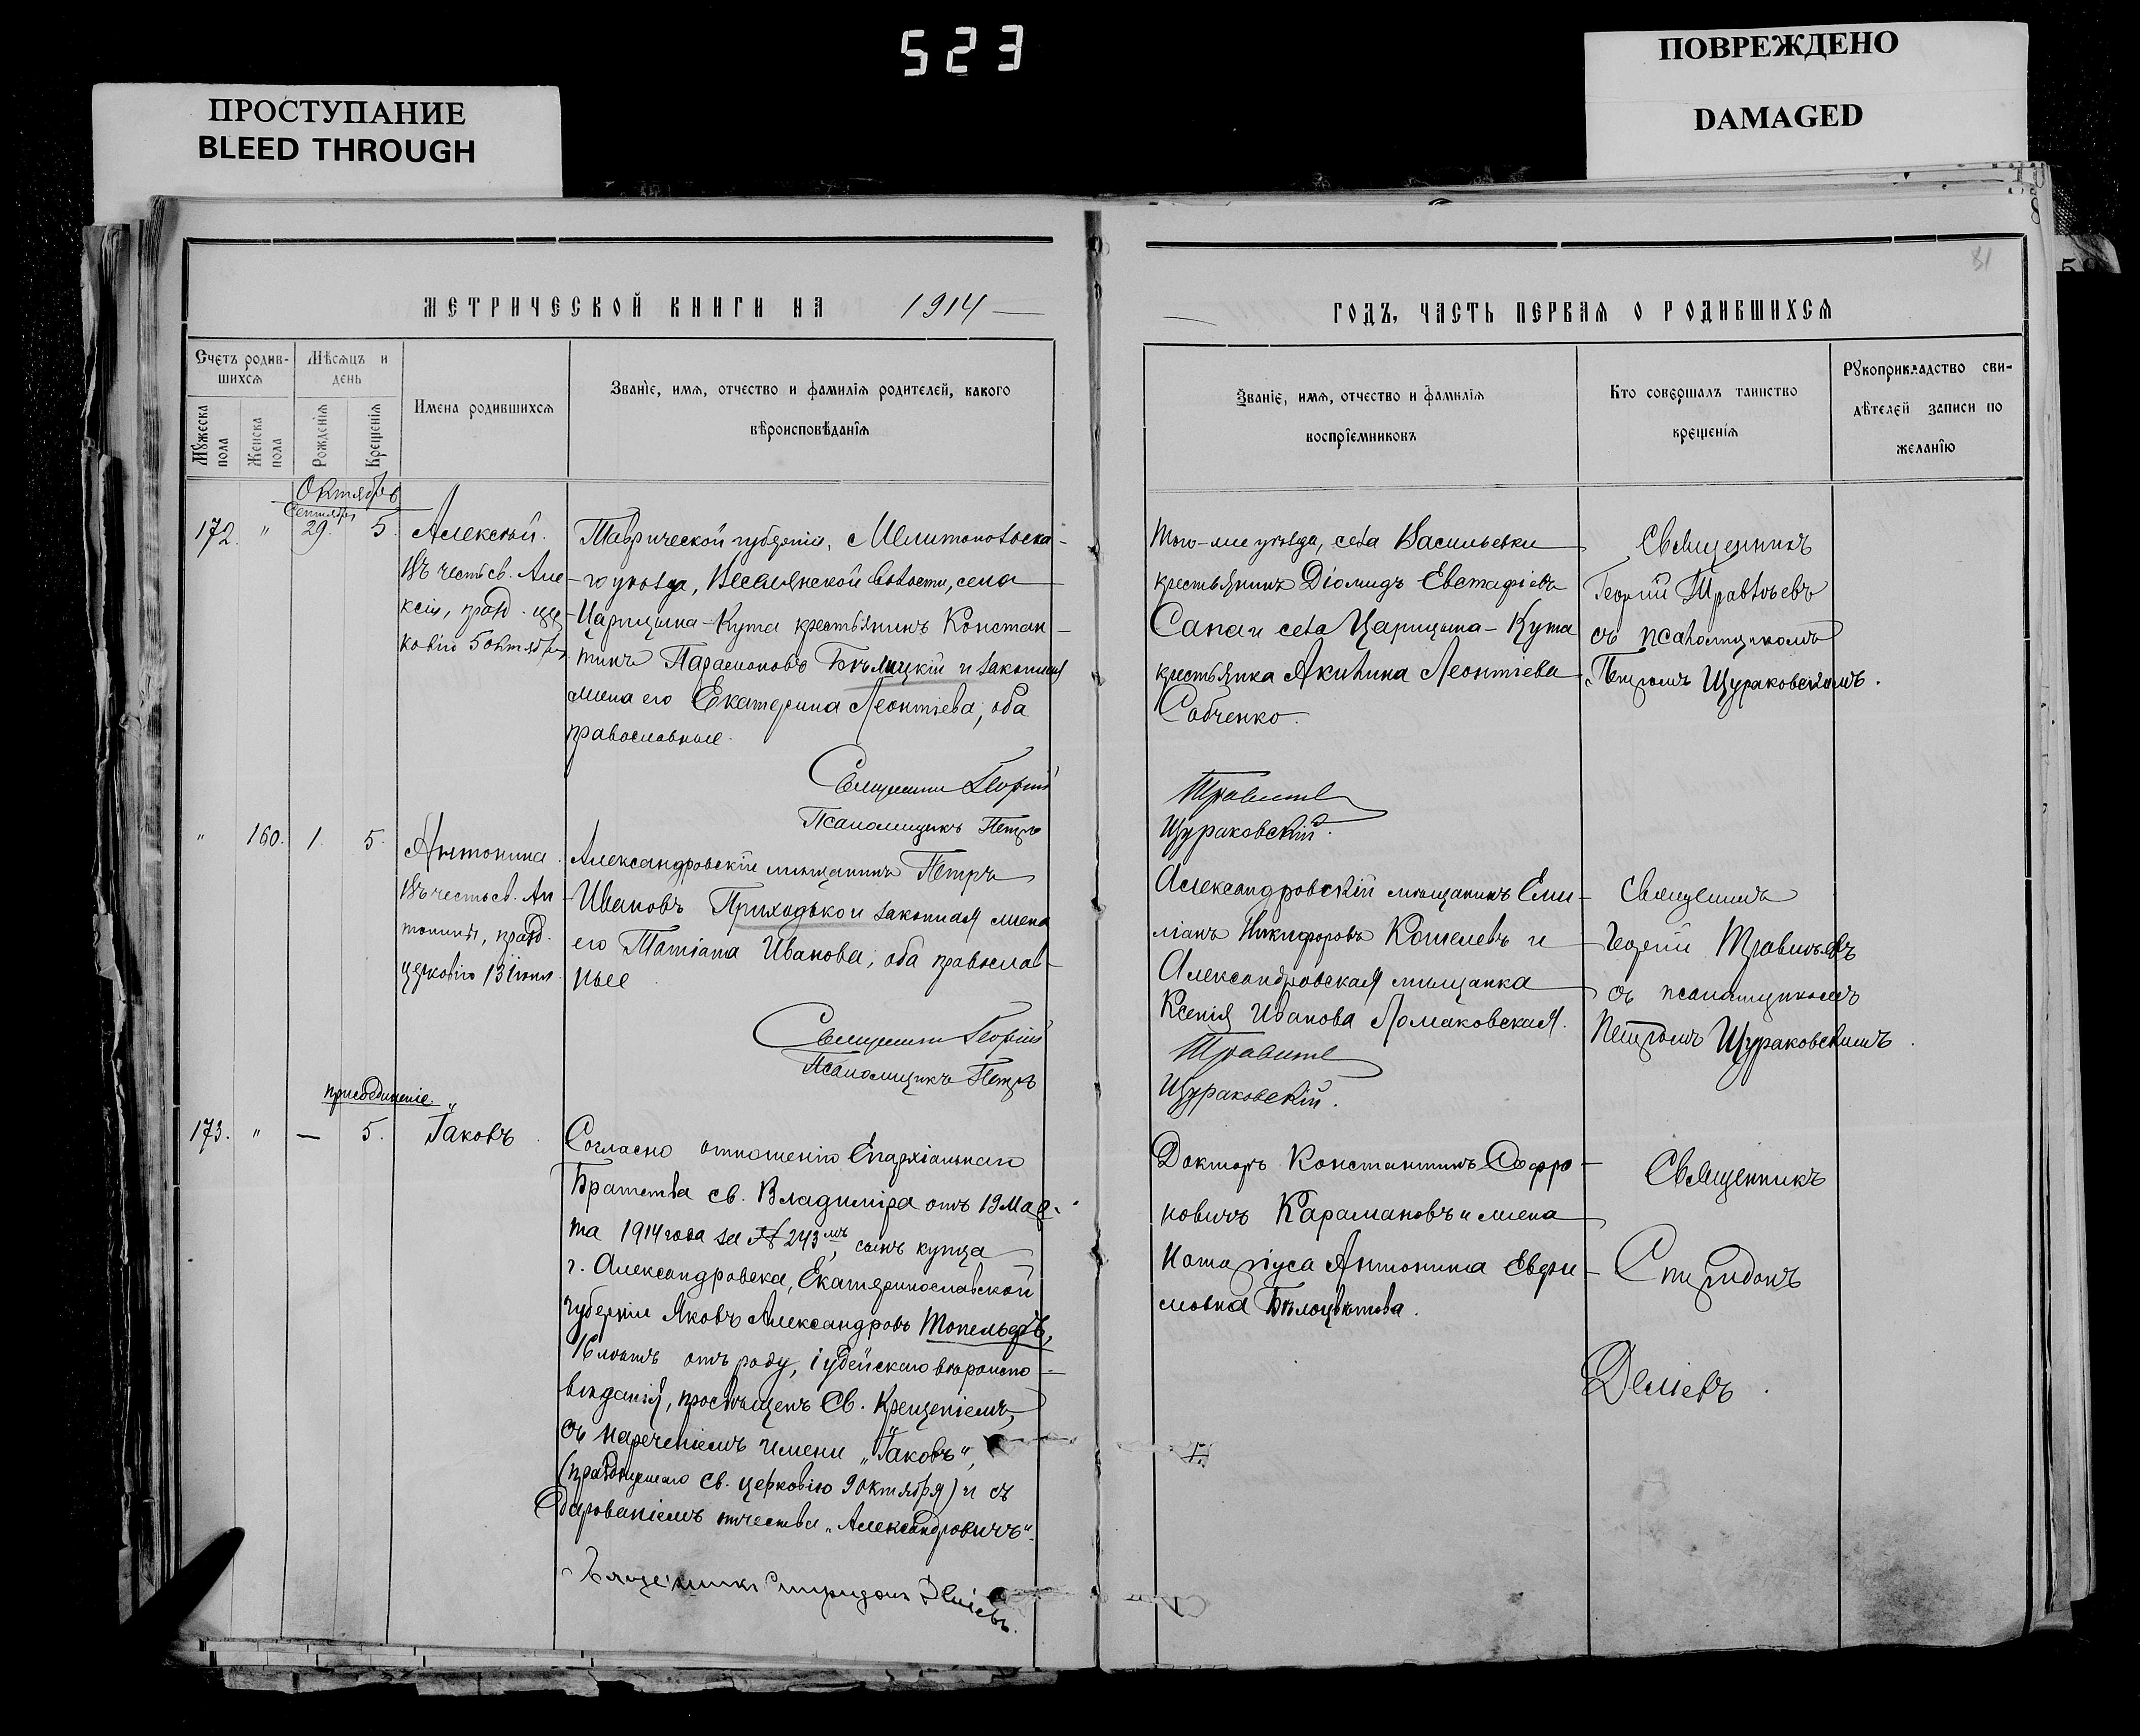 523
ПРОСТУПАНИЕ
BLEED THROUGH
ПОВРЕЖДЕНО
DAMAGED
81
МЕТРИЧЕСКОЙ КНИГИ НА 1914
ГОДЪ, ЧАСТЬ ПЕРВАЯ О РОДИВШИХСЯ
Счетъ родив-
шихся
Мужеска
пола
Женска
пола
Мѣсяцъ и
день
Рожденія
Крещенія
Имена родившихся
Званіе, имя, отчество и фамилія родителей, какого
вѣроисповѣданія
Званіе, имя, отчество и фамилія
воспріемниковъ
Кто совершалъ таинство
крещенія
Рукоприкладство сви-
дѣтелей записи по
желанію
Октябрь
Сентября
172. " 29. 5.
Алексѣй.
Въ честь св. Але-
ксія, празд. цер
ковію 5 октября
Таврической губерніи, Мелитопольска-
го уѣзда, Веселянской волости, села
Царицына-Кута крестьянинъ Констан-
тинъ Парамоновъ Бѣлицкій и законная
жена его Екатерина Леонтіева, оба
православные.
Священникъ Георгій
Псаломщикъ Петръ
Того-же уѣзда, села Васильевки
крестьянинъ Діомидъ Евстафіевъ
Сапа и села Царицына-Кута
крестьянка Акилина Леонтіева
Собченко.
Щураковскій.
Священникъ
Георгій
съ псаломщикомъ
Петромъ Щураковскимъ.
" 160. 1. 5.
Антонина.
Въ честь св. Ан
тонины, празд.
церковію 13 іюня.
Александровскій мѣщанинъ Петръ
Ивановъ Приходько и законная жена
его Татіана Иванова, оба православ-
ные.
Священникъ Георгій
Псаломщикъ Петръ
Александровскій мѣщанинъ Еми-
ліанъ Никифоровъ Кошелевъ и
Александровская мѣщанка
Ксенія Иванова Ломаковская.
Щураковскій.
Священникъ
Георгій
съ псаломщикомъ
Петромъ Щураковскимъ.
присоединеніе "
173. " — 5.
Іаковъ.
Согласно отношенію Епархіальнаго
Братства св. Владиміра отъ 19 Мар-
та 1914 года за № 243 мъ, сынъ купца
г. Александровска, Екатеринославской
губерніи Яковъ Александровъ Топельфъ,
16 лѣтъ отъ роду, іудейскаго вѣроиспо-
вѣданія, просвѣщенъ Св. Крещеніемъ,
съ нареченіемъ имени „Іаковъ",
(празднуемаго св. церковію 9 октября) и съ
дарованіемъ отчества „Александровичъ".
Священникъ Спиридонъ
Докторъ Константинъ Софро-
новичъ Карамановъ и жена
Нотаріуса Антонина Евфи-
мовна Бѣлоцвѣтова.
Священникъ
Спиридонъ